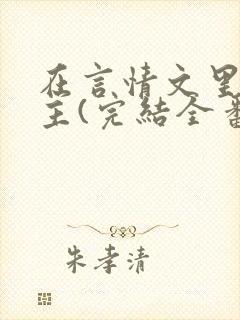 在言情文里
主(完結全
朱孝清